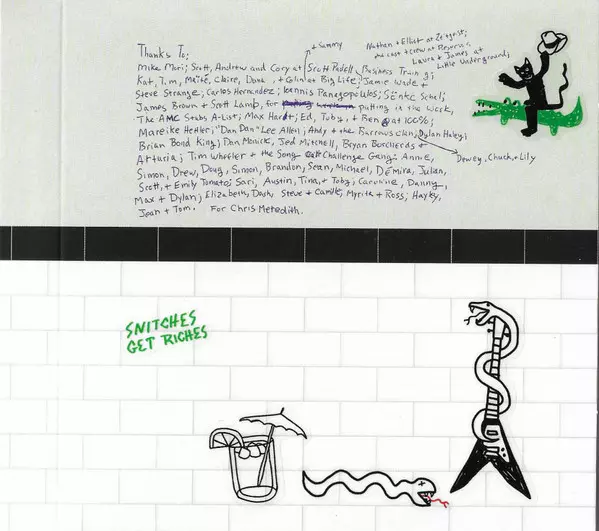 + Sammy
Nathan + Elliot at Zeitgeist;
the cast + crew at Reserve;
Laura + James at
Little Underground;
Thanks To:
Mike Mori; Scott, Andrew and Cory at Scott Padell Business Traing;
Kat, Tim, Maite, Claire, Dona, + Colin at Big Life; Jamie Wade +
Steve Strange; Carlos Hernandez; Ioannis Panagopoulos; Senke Scheli;
James Brown + Scott Lamp, for putting in the work,
The AMC Stubs A-List; Max Hardt; Ed, Toby, + Ben @ at 100%;
Mareike Hettler; "Dan Dan" Lee Allen; Andy + the Burrows clan; Dylan Haley;
Brian Bond King; Dan Monick, Jed Mitchell, Bryan Borcherds +
Arturia; Tim Wheeler + the Song Challenge Gang: Annie,
Simon, Drew, Doug, Simon, Brandon, Sean, Michael, Demira, Julian,
Scott, + Emily Tomato; Sari, Austin, Tina, + Toby; Caroline, Danny,
Max + Dylan; Elizabeth, Dash, Steve + Camille, Myrita + Ross; Hayky,
Jean + Tom. For Chris Meredith.
Dewey, Chuck, + Lily
SNITCHES
GET RICHES